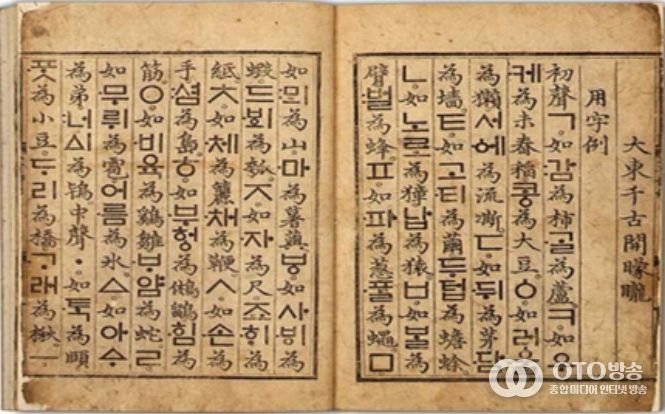 大東千古開矇矓
用字例
初聲ㄱ如감為柿ᄀᆞᆯ為蘆ㅋ如우
케為未舂稻콩為大豆ㆁ如러울
為獺서에為流凘ㄷ如뒤為茅담
為墻ㅌ如고티為繭두텁為蟾蜍
ㄴ如노로為獐납為猿ㅂ如ᄇᆞᆯ為
臂벌為蜂ㅍ如파為葱ᄑᆞᆯ為蠅ㅁ
如뫼為山마為薯藇ㅸ如사ᄫᅵ為
蝦드ᄫᅴ為瓠ㅈ如자為尺죠ᄒᆡ為
紙ㅊ如체為籭채為鞭ㅅ如손為
手셤為島ㅎ如부헝為鵂鶹힘為
筋ㅇ如비육為鷄雛ᄇᆞ얌為蛇ㄹ
如무뤼為雹어름為氷ㅿ如아ᅀᆞ
為弟너ᅀᅵ為鴇中聲ㆍ如ᄐᆞᆨ為頤
ᄑᆞᆺ為小豆ᄃᆞ리為橋ᄀᆞ래為楸ㅡ
OTO방송
종합미디어 인터넷 방송